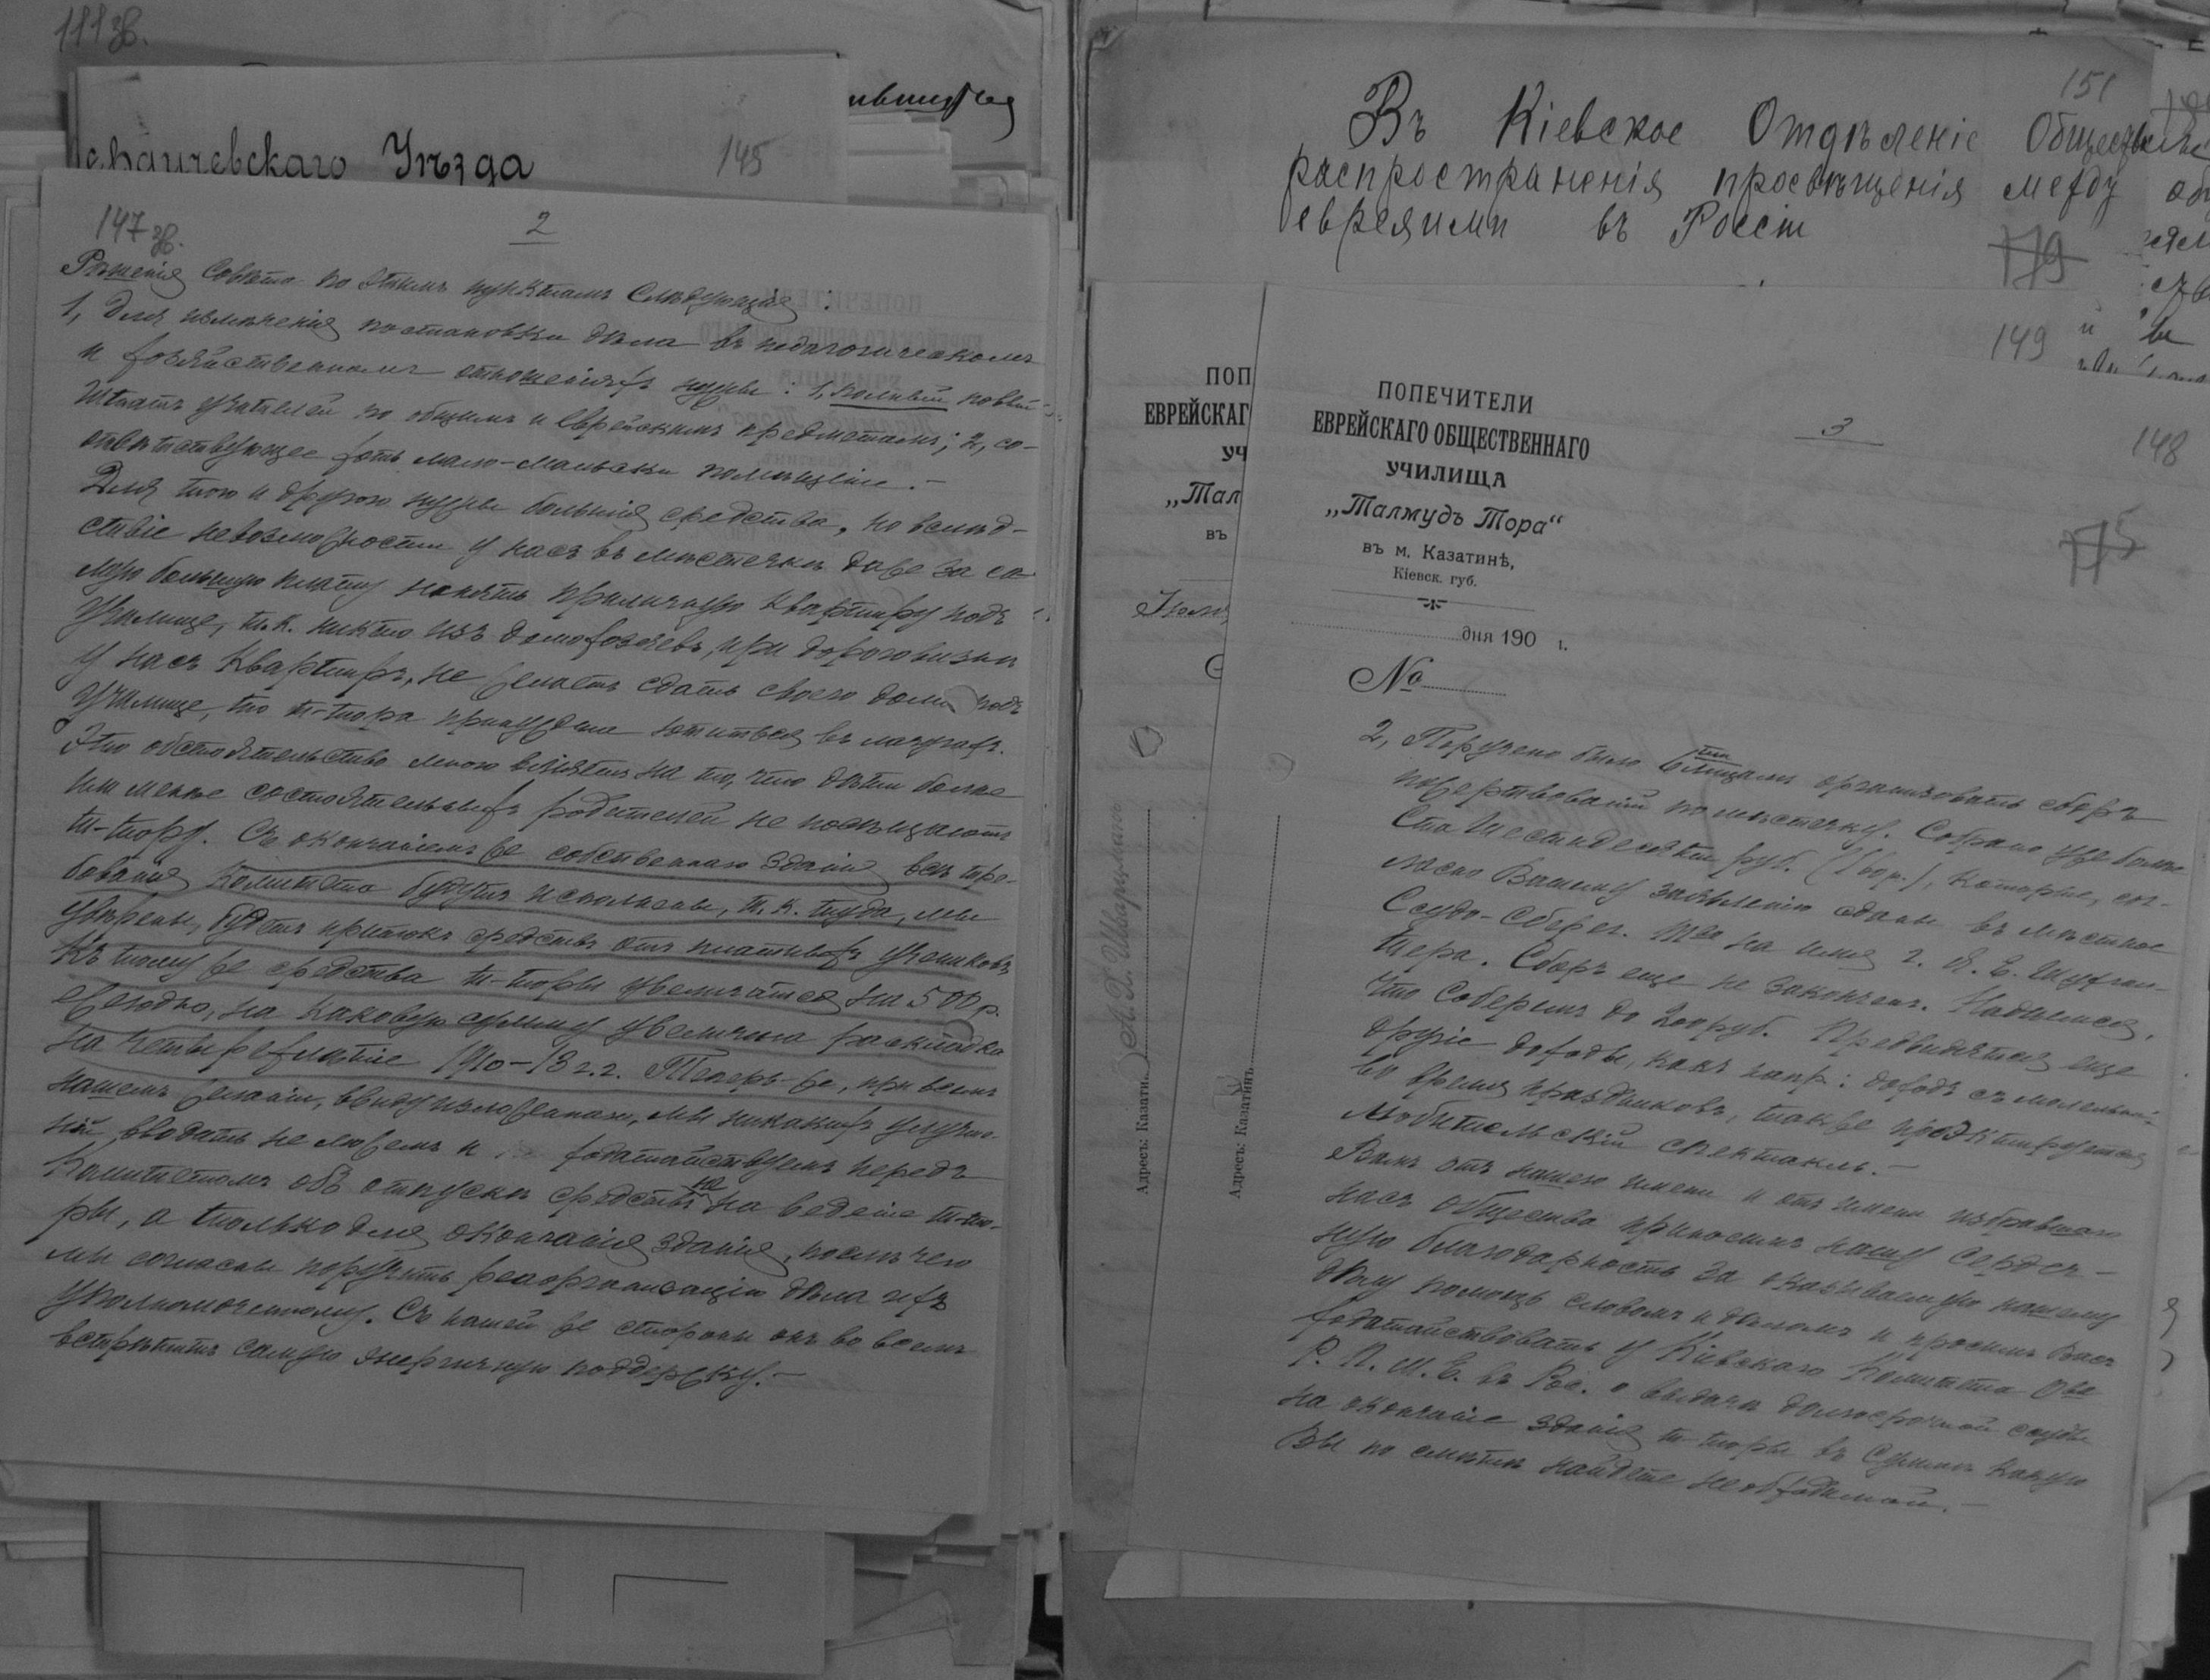 111 зв.
145
Уѣзда
147 зв.
2
Рѣшенія Совѣта по этимъ пунктамъ слѣдующія:
1, Для измѣненія постановки дѣла въ педагогическомъ
и хозяйственномъ отношеніяхъ нужны: 1, полный новый
штатъ учителей по общимъ и еврейскимъ предметамъ; 2, со-
отвѣтствующее хоть мало-мальски помѣщеніе.—
Для того и другого нужны большія средства, но вслѣд-
ствіе невозможности у насъ въ мѣстечкѣ даже за са-
мую большую плату нанять приличную квартиру подъ
училище, т.к. никто изъ домохозяевъ, при дороговизнѣ
у насъ квартиръ, не желаетъ сдать своего дома подъ
училище, то т-тора принуждена ютиться въ лачугахъ.
Это обстоятельство много вліяетъ на то, что дѣти болѣе
или менѣе состоятельныхъ родителей не посѣщаютъ
т-тору. Съ окончаніемъ же собственнаго зданія всѣ тре-
бованія Комитета будутъ исполнены, т.к. тогда, мы
увѣрены, будетъ притокъ средствъ отъ платныхъ учениковъ
Къ тому же средства т-торы увеличатся на 500 р.
ежегодно, на каковую сумму увеличена раскладка
на четырехлѣтіе 1910-13 г.г. Теперь же, при всемъ
нашемъ желаніи, ввиду изложеннаго, мы никакихъ улучше-
ній вводить не можемъ и ходатайствуемъ передъ
Комитетомъ объ отпускѣ средствъ не на веденіе т-то-
ры, а только для окончанія зданія, послѣ чего
мы согласны поручить реорганизацію дѣла ихъ
уполномоченному. Съ нашей же стороны онъ во всемъ
встрѣтитъ самую энергичную поддержку.—
151
Въ Кіевское Отдѣленіе Общества
распространенія просвѣщенія между
евреями въ Россіи
179
149
ПОП
ЕВРЕЙСКАГ
УЧ
„Тал
въ
А. Х. Шварцманъ
Адресъ: Казати
ПОПЕЧИТЕЛИ
ЕВРЕЙСКАГО ОБЩЕСТВЕННАГО
УЧИЛИЩА
„Талмудъ Тора“
въ м. Казатинѣ,
Кіевск. губ.
дня 190 г.
№
3
148
175
Адресъ: Казатинъ.
2, Поручено было 6ти лицамъ организовать сборъ
пожертвованій по мѣстечку. Собрано уже болѣе
Ста Шестидесяти руб. (160 р.), которые, сог-
ласно Вашему заявленію сданы въ мѣстное
Ссудо-Сберег. Тво на имя г. Я. Е.
Сборъ еще не законченъ. Надѣемся,
что соберемъ до 200 руб. Предвидятся еще
другіе доходы, какъ напр.: доходъ съ молельни
во время праздниковъ, также проэктируется
любительскій спектакль.—
Вамъ отъ нашего имени и отъ имени избравшаго
насъ общества приносимъ нашу сердеч-
ную благодарность за оказываемую нашему
дѣлу помощь словомъ и дѣломъ и просимъ Васъ
ходатайствовать у Кіевскаго Комитета Ова
Р. П. М. Е. въ Рос. о выдачѣ долгосрочной ссуды
на окончаніе зданія т-торы въ суммѣ какую
Вы по смѣтѣ найдете необходимой.—